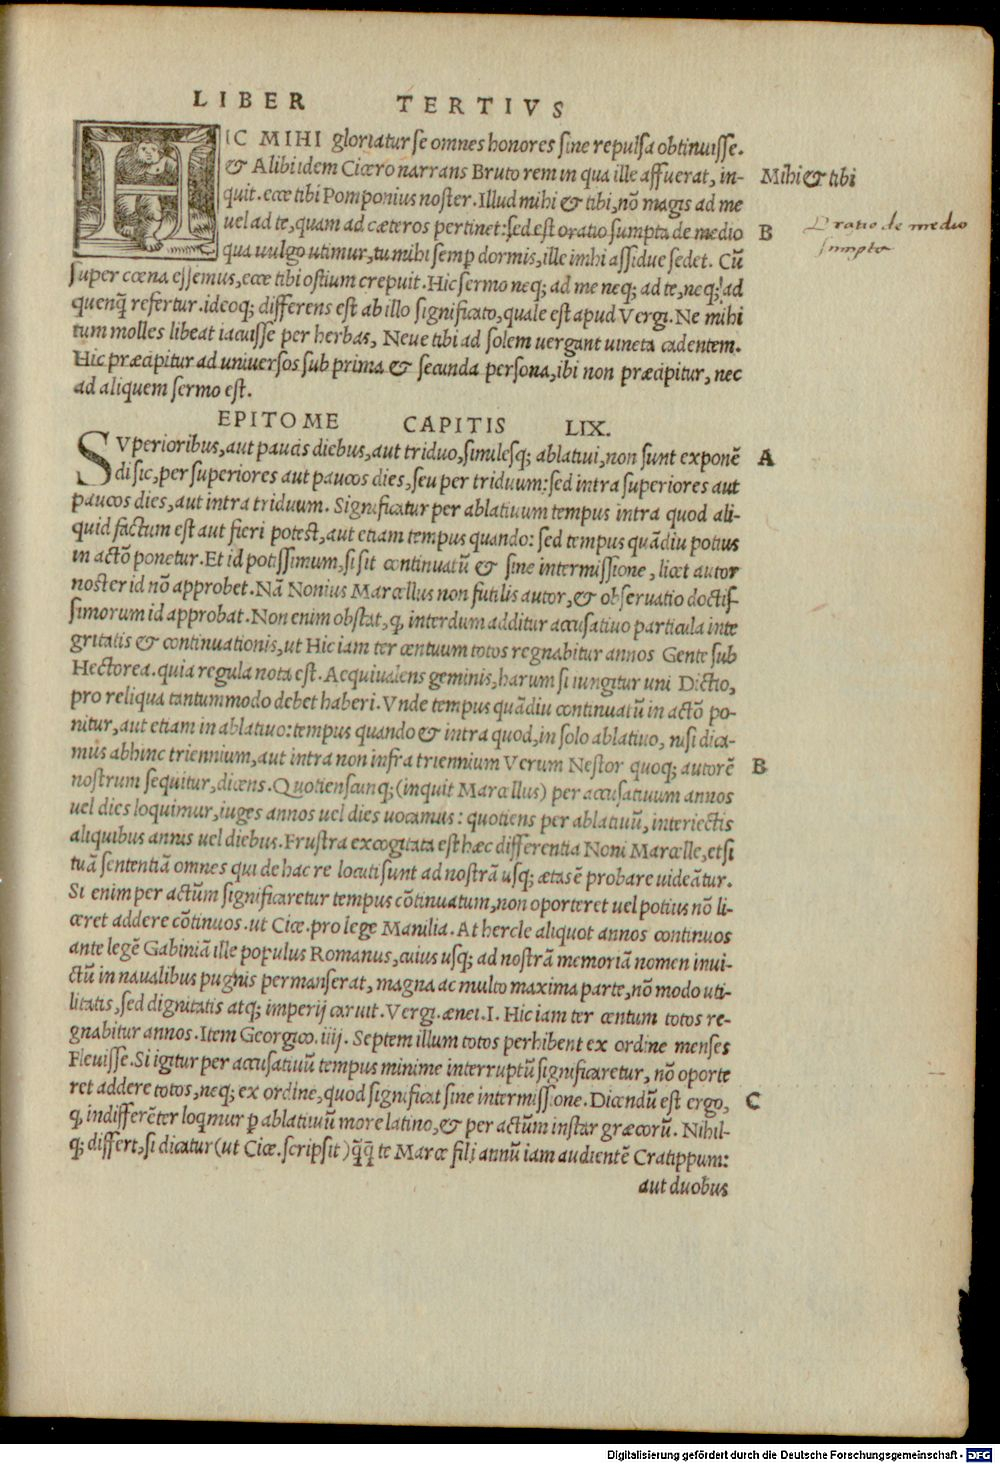 LIBER TERTIVS
HIC MIHI gloriatur se omnes honores sine repulsa obtinuisse.
& Alibi idem Cicero narrans Bruto rem in qua ille affuerat, in-
quit. ecce tibi Pomponius noster. Illud mihi & tibi, nō magis ad me
uel ad te, quam ad cæteros pertinet: sed est oratio sumpta de medio
qua uulgo utimur, tu mihi semꝑ dormis, ille mihi assidue sedet. Cū
super cœna essemus, ecce tibi ostium crepuit. Hic sermo neq; ad me neq; ad te, neq; ad
quenq̄ refertur. ideoq; differens est ab illo significato, quale est apud Vergi. Ne mihi
tum molles libeat iacuisse per herbas, Neue tibi ad solem uergant uineta cadentem.
Hic præcipitur ad uniuersos sub prima & secunda persona, ibi non præcipitur, nec
ad aliquem sermo est.
Mihi & tibi
B
Oratio de medio
sumpta
EPITOME CAPITIS LIX.
SVperioribus, aut paucis diebus, aut triduo, similesq; ablatiui, non sunt exponē
di sic, per superiores aut paucos dies, seu per triduum: sed intra superiores aut
paucos dies, aut intra triduum. Significatur per ablatiuum tempus intra quod ali-
quid factum est aut fieri potest, aut etiam tempus quando: sed tempus quādiu potius
in actō ponetur. Et id potissimum, si sit continuatū & sine intermissione, licet autor
noster id nō approbet. Nā Nonius Marcellus non futilis autor, & obseruatio doctis-
simorum id approbat. Non enim obstat, q, interdum additur accusatiuo particula inte
gritatis & continuationis, ut Hic iam ter centuum totos regnabitur annos Gente sub
Hectorea. quia regula nota est. Aequiualens geminis, harum si iungitur uni Dictio,
pro reliqua tantummodo debet haberi. Vnde tempus quādiu continuatū in actō po-
nitur, aut etiam in ablatiuo: tempus quando & intra quod, in solo ablatiuo, nisi dica-
mus abhinc triennium, aut intra non infra triennium Verum Nestor quoq; autorē
nostrum sequitur, dicens. Quotienscunq; (inquit Marcellus) per accusatiuum annos
uel dies loquimur, iuges annos uel dies uocamus: quotiens per ablatiuū, interiectis
aliquibus annis uel diebus. Frustra excogitata est hæc differentia Noni Marcelle, etsi
tuā sententiā omnes qui de hac re locuti sunt ad nostrā usq; ætatē probare uideātur.
Si enim per actūm significaretur tempus cōtinuatum, non oporteret uel potius nō li-
ceret addere cōtinuos. ut Cice. pro lege Manilia. At hercle aliquot annos continuos
ante legē Gabiniā ille populus Romanus, cuius usq; ad nostrā memoriā nomen inui-
ctū in naualibus pugnis permanserat, magna ac multo maxima parte, nō modo uti-
litatis, sed dignitatis atq; imperij caruit. Vergi. ænei. I. Hic iam ter centum totos re-
gnabitur annos. Item Georgico. iiij. Septem illum totos perhibent ex ordine menses
Fleuisse. Si igitur per accusatiuū tempus minime interruptū significaretur, nō oporte
ret addere totos, neq; ex ordine, quod significat sine intermissione. Dicendū est ergo,
q, indifferēter loqmur ꝑ ablatiuū more latino, & per actūm instar græcorū. Nihil-
q; differt, si dicatur (ut Cice. scripsit) q̄q̄ te Marce fili annū iam audientē Cratippum:
aut duobus
A
B
C
Digitalisierung gefördert durch die Deutsche Forschungsgemeinschaft - DFG